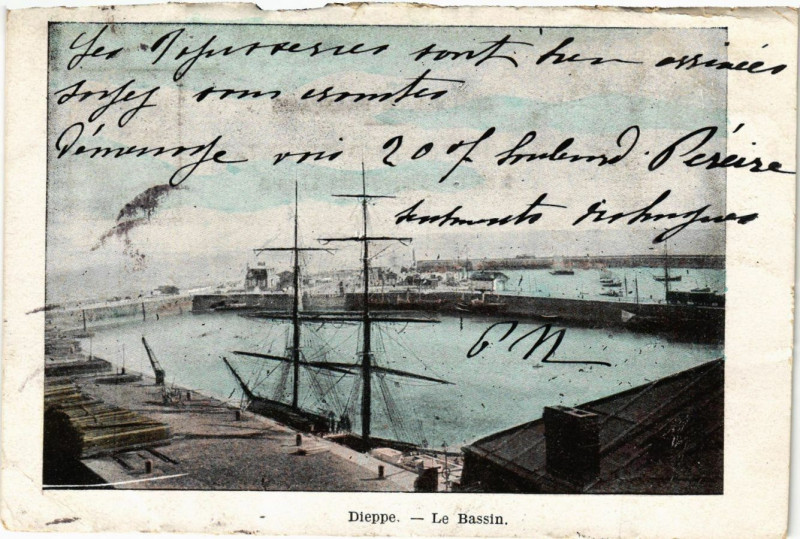 Les Tapisseries sont bien arrivées
soyez sans craintes
Déménage vois 207 boulevard Péreire
sentiments distingués
PM
Dieppe. — Le Bassin.